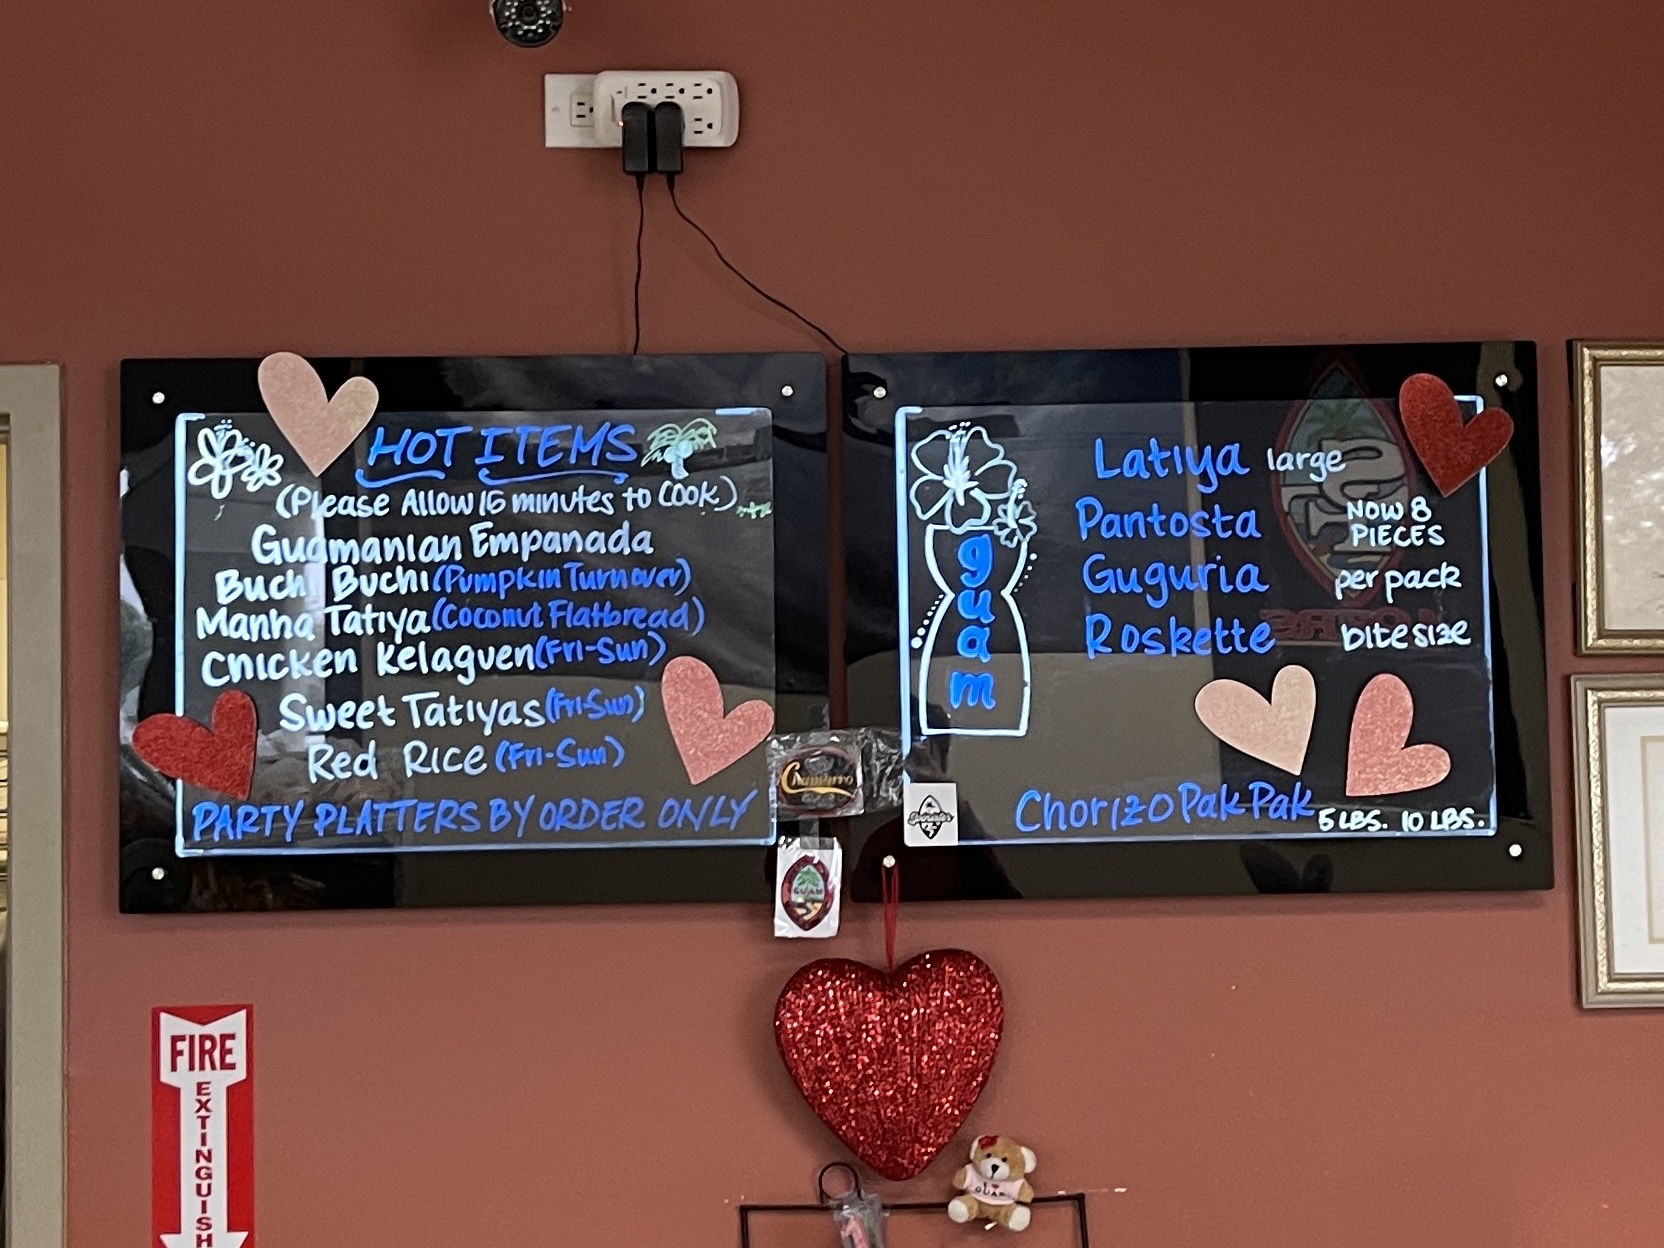 HOT ITEMS
(Please Allow 15 minutes to Cook)
Guamanian Empanada
Buchi Buchi (Pumpkin Turnover)
Manha Tatiya (Coconut Flatbread)
Chicken Kelaguen (Fri-Sun)
Sweet Tatiyas (Fri-Sun)
Red Rice (Fri-Sun)
PARTY PLATTERS BY ORDER ONLY
guam
Latiya large
Pantosta NOW 8 PIECES
Guguria per pack
Roskette bite size
Chorizo Pak Pak 5 LBS. 10 LBS.
Chamorro
GUAM
FIRE
EXTINGUISH